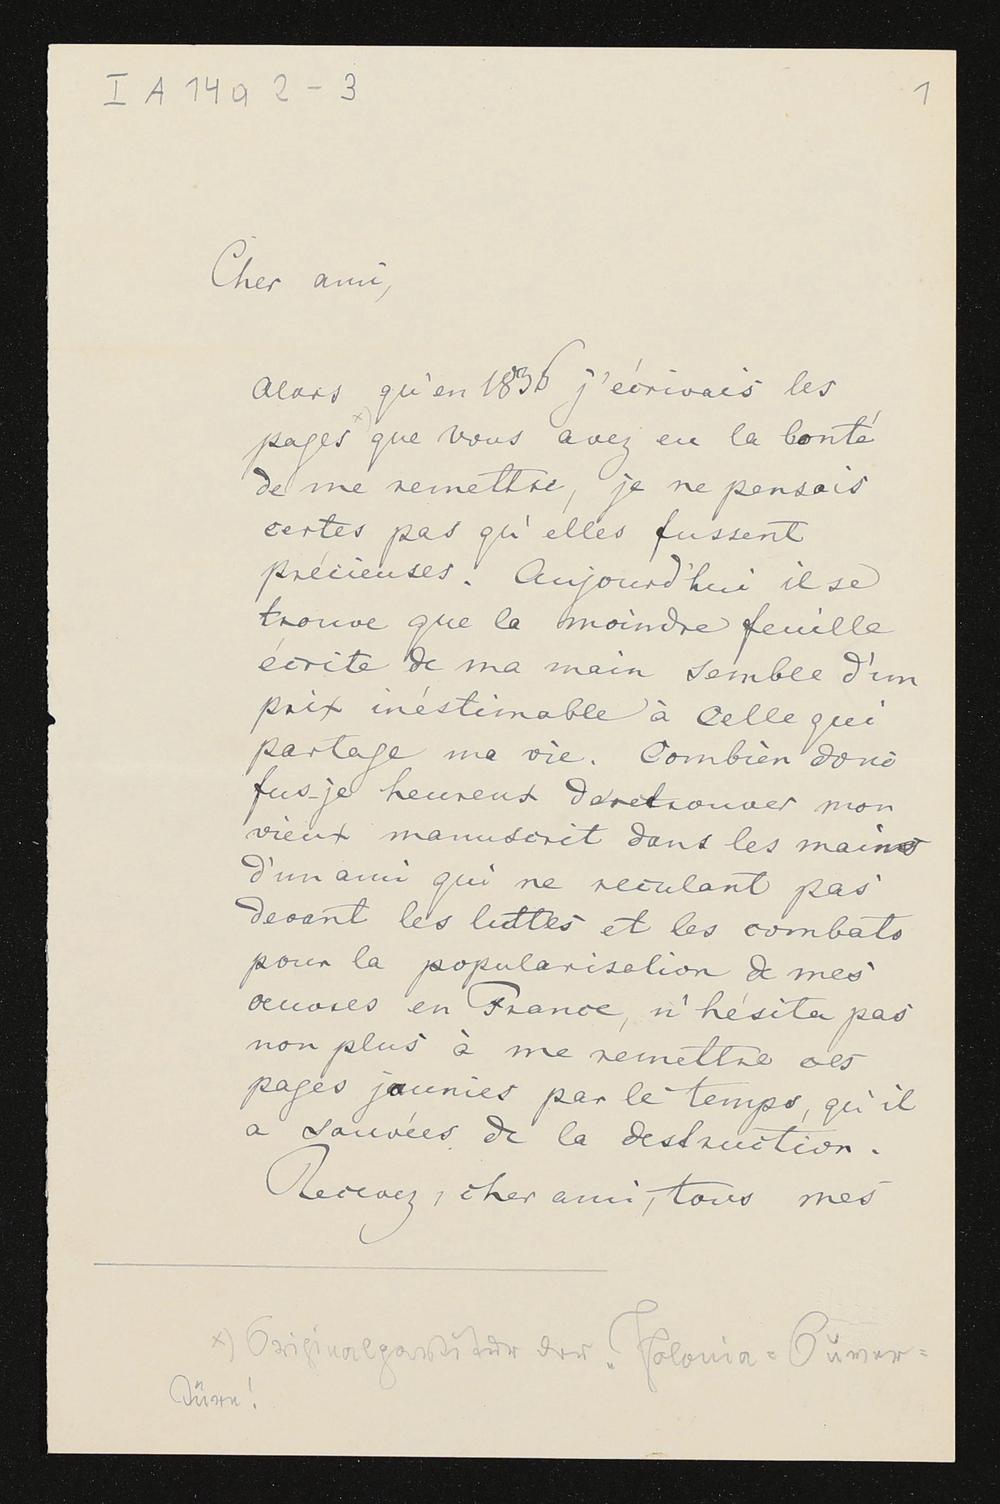 I A 14a 2-3
1
Cher ami,
Alors qu'en 1836 j'écrivais les
pages x) que vous avez eu la bonté
de me remettre, je ne pensais
certes pas qu'elles fussent
précieuses. Aujourd'hui il se
trouve que la moindre feuille
écrite de ma main semble d'un
prix inéstimable à celle qui
partage ma vie. Combien donc
fus-je heureux de retrouver mon
vieux manuscrit dans les mains
d'un ami qui ne reculant pas
devant les luttes et les combats
pour la popularisation de mes
oeuvres en France, n'hésita pas
non plus à me remettre ces
pages jaunies par le temps, qu'il
a sauvées de la destruction.
Recevez, cher ami, tous mes
x) Originalpartitur der „Polonia-Ouver-
türe!